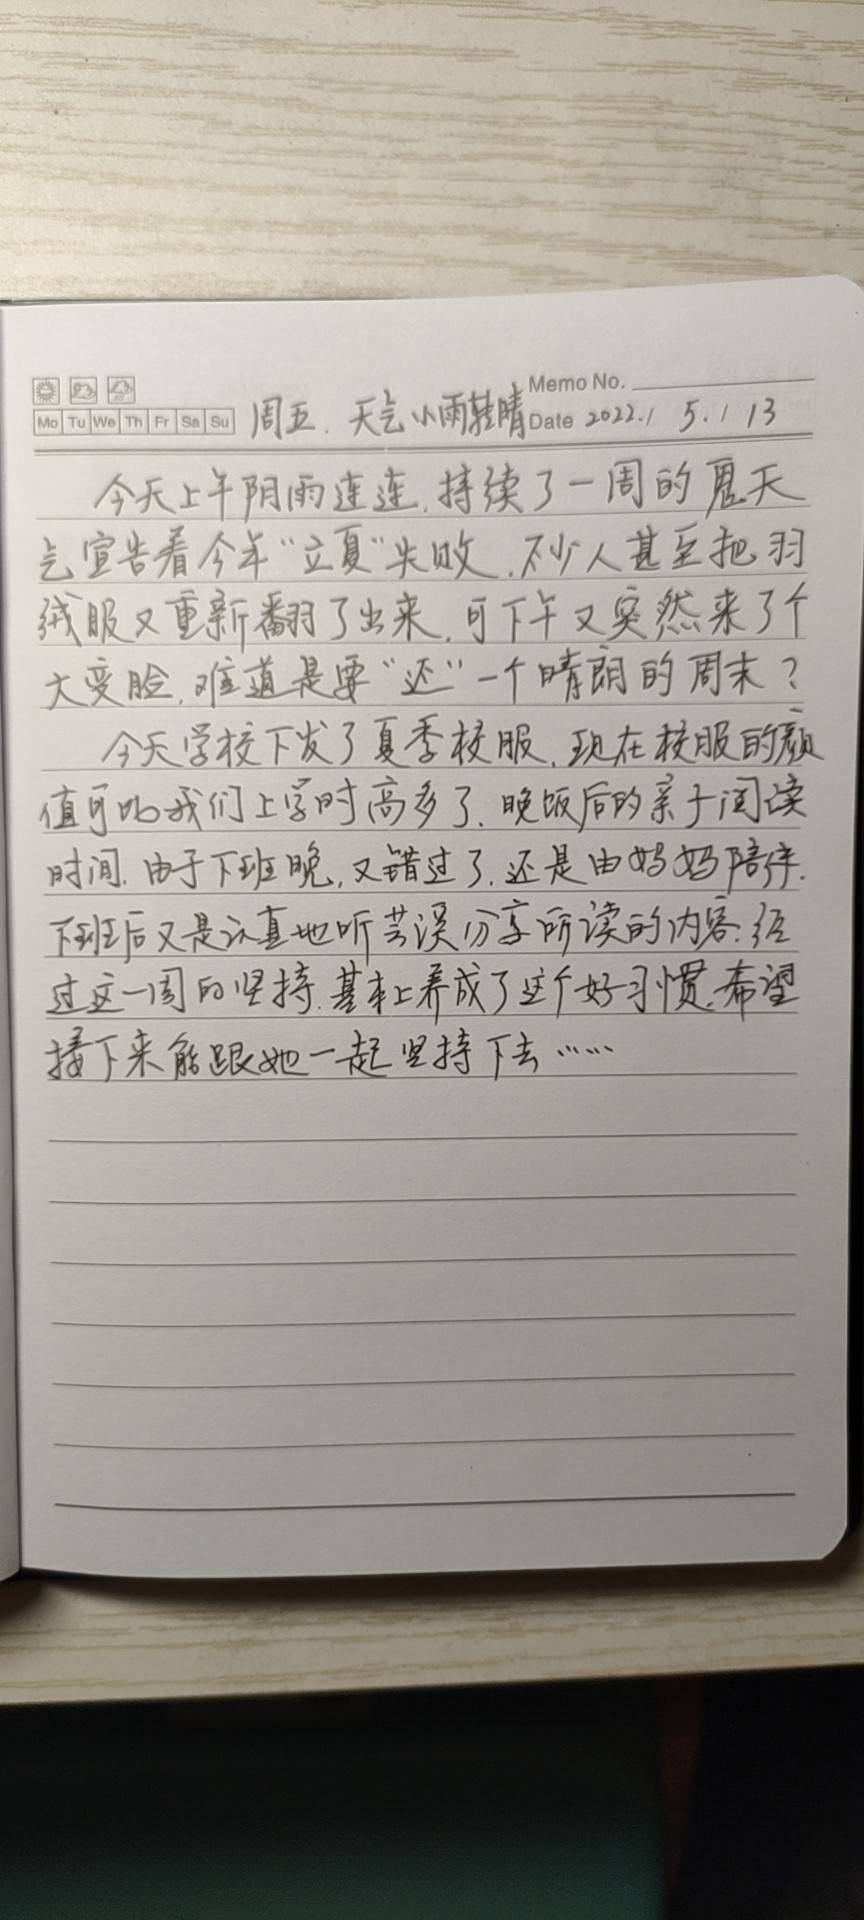 Memo No.
Mo Tu We Th Fr Sa Su 周五. 天气小雨转晴 Date 2022.1 5.1 13
今天上午阴雨连连,持续了一周的鬼天
气宣告着今年“立夏”失败,不少人甚至把羽
绒服又重新翻了出来,可下午又突然来了个
大变脸,难道是要“还”一个晴朗的周末?
今天学校下发了夏季校服,现在校服的颜
值可比我们上学时高多了.晚饭后的亲子阅读
时间.由于下班晚,又错过了.还是由妈妈陪伴.
下班后又是认真地听芸溪分享所读的内容.经
过这一周的坚持.基本上养成了这个好习惯.希望
接下来能跟她一起坚持下去……